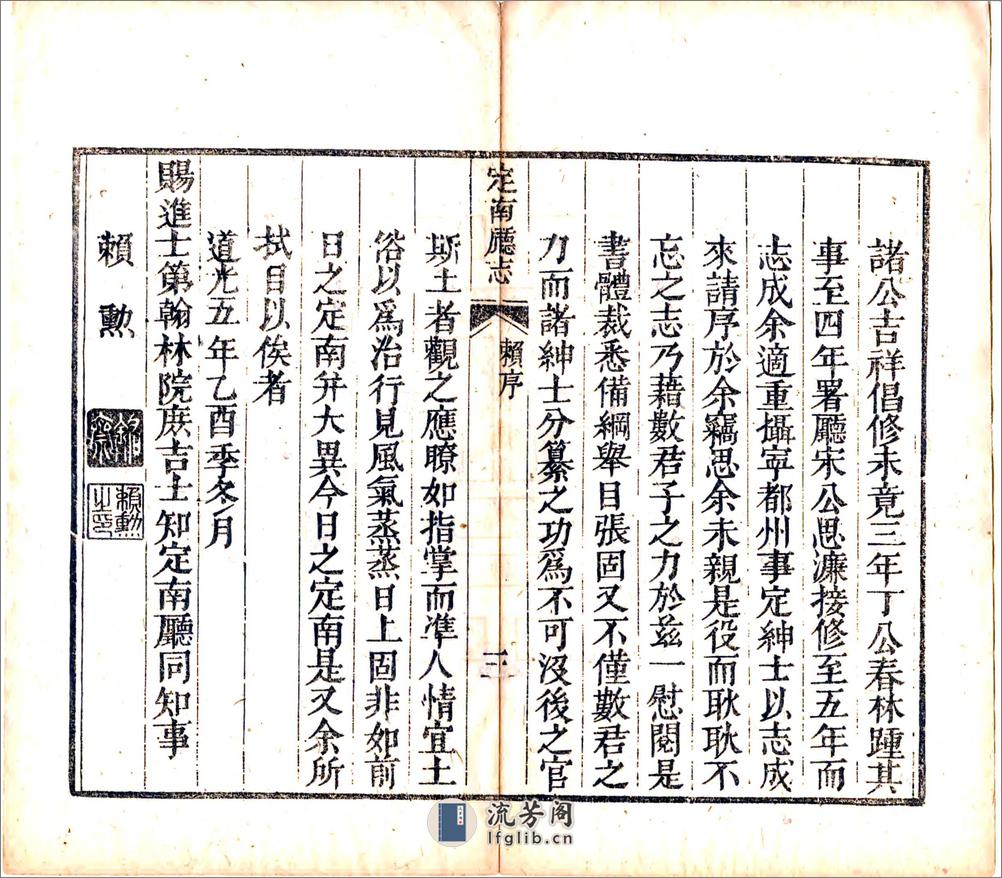 諸公吉祥倡修未竟三年丁公春林踵其
事至四年署廳宋公思濂接修至五年而
志成余適重攝寧都州事定紳士以志成
來請序於余竊思余未親是役而耿耿不
忘之志乃藉數君子之力於兹一慰閱是
書體裁悉備綱舉目張固又不僅數君之
力而諸紳士分纂之功爲不可沒後之官
定南廳志
賴序
三
斯土者觀之應瞭如指掌而準人情宜土
俗以爲治行見風氣蒸蒸日上固非如前
日之定南幷大異今日之定南是又余所
拭目以俟者
道光五年乙酉季冬月
賜進士第翰林院庶吉士知定南廳同知事
賴勲
賴勲之印
流芳阁
lfglib.cn